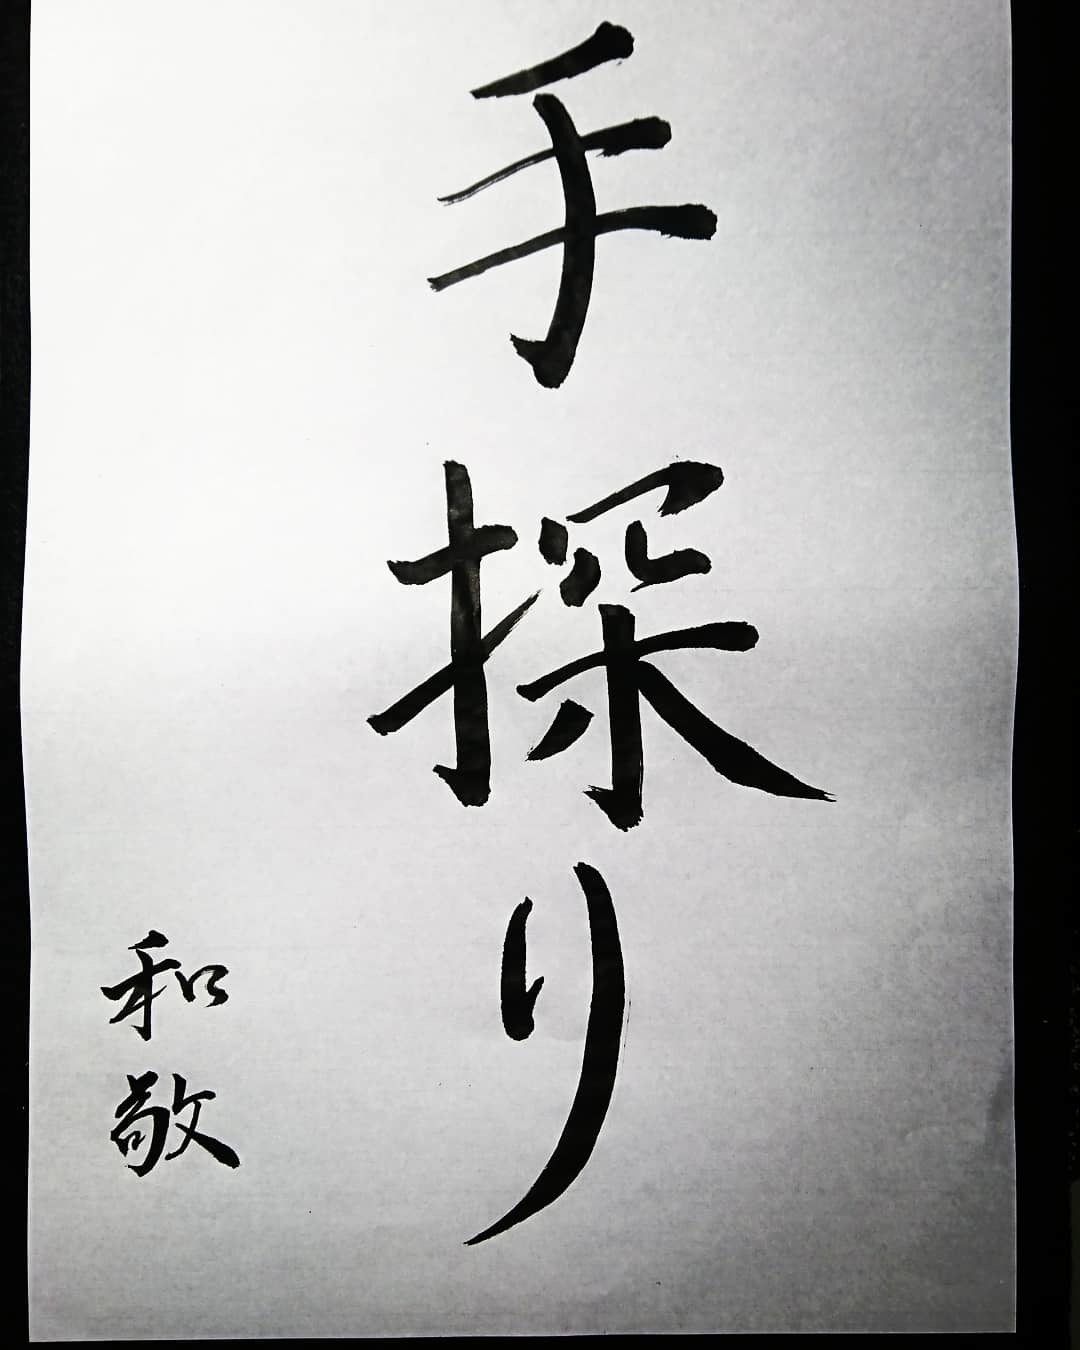 手探り
和敬